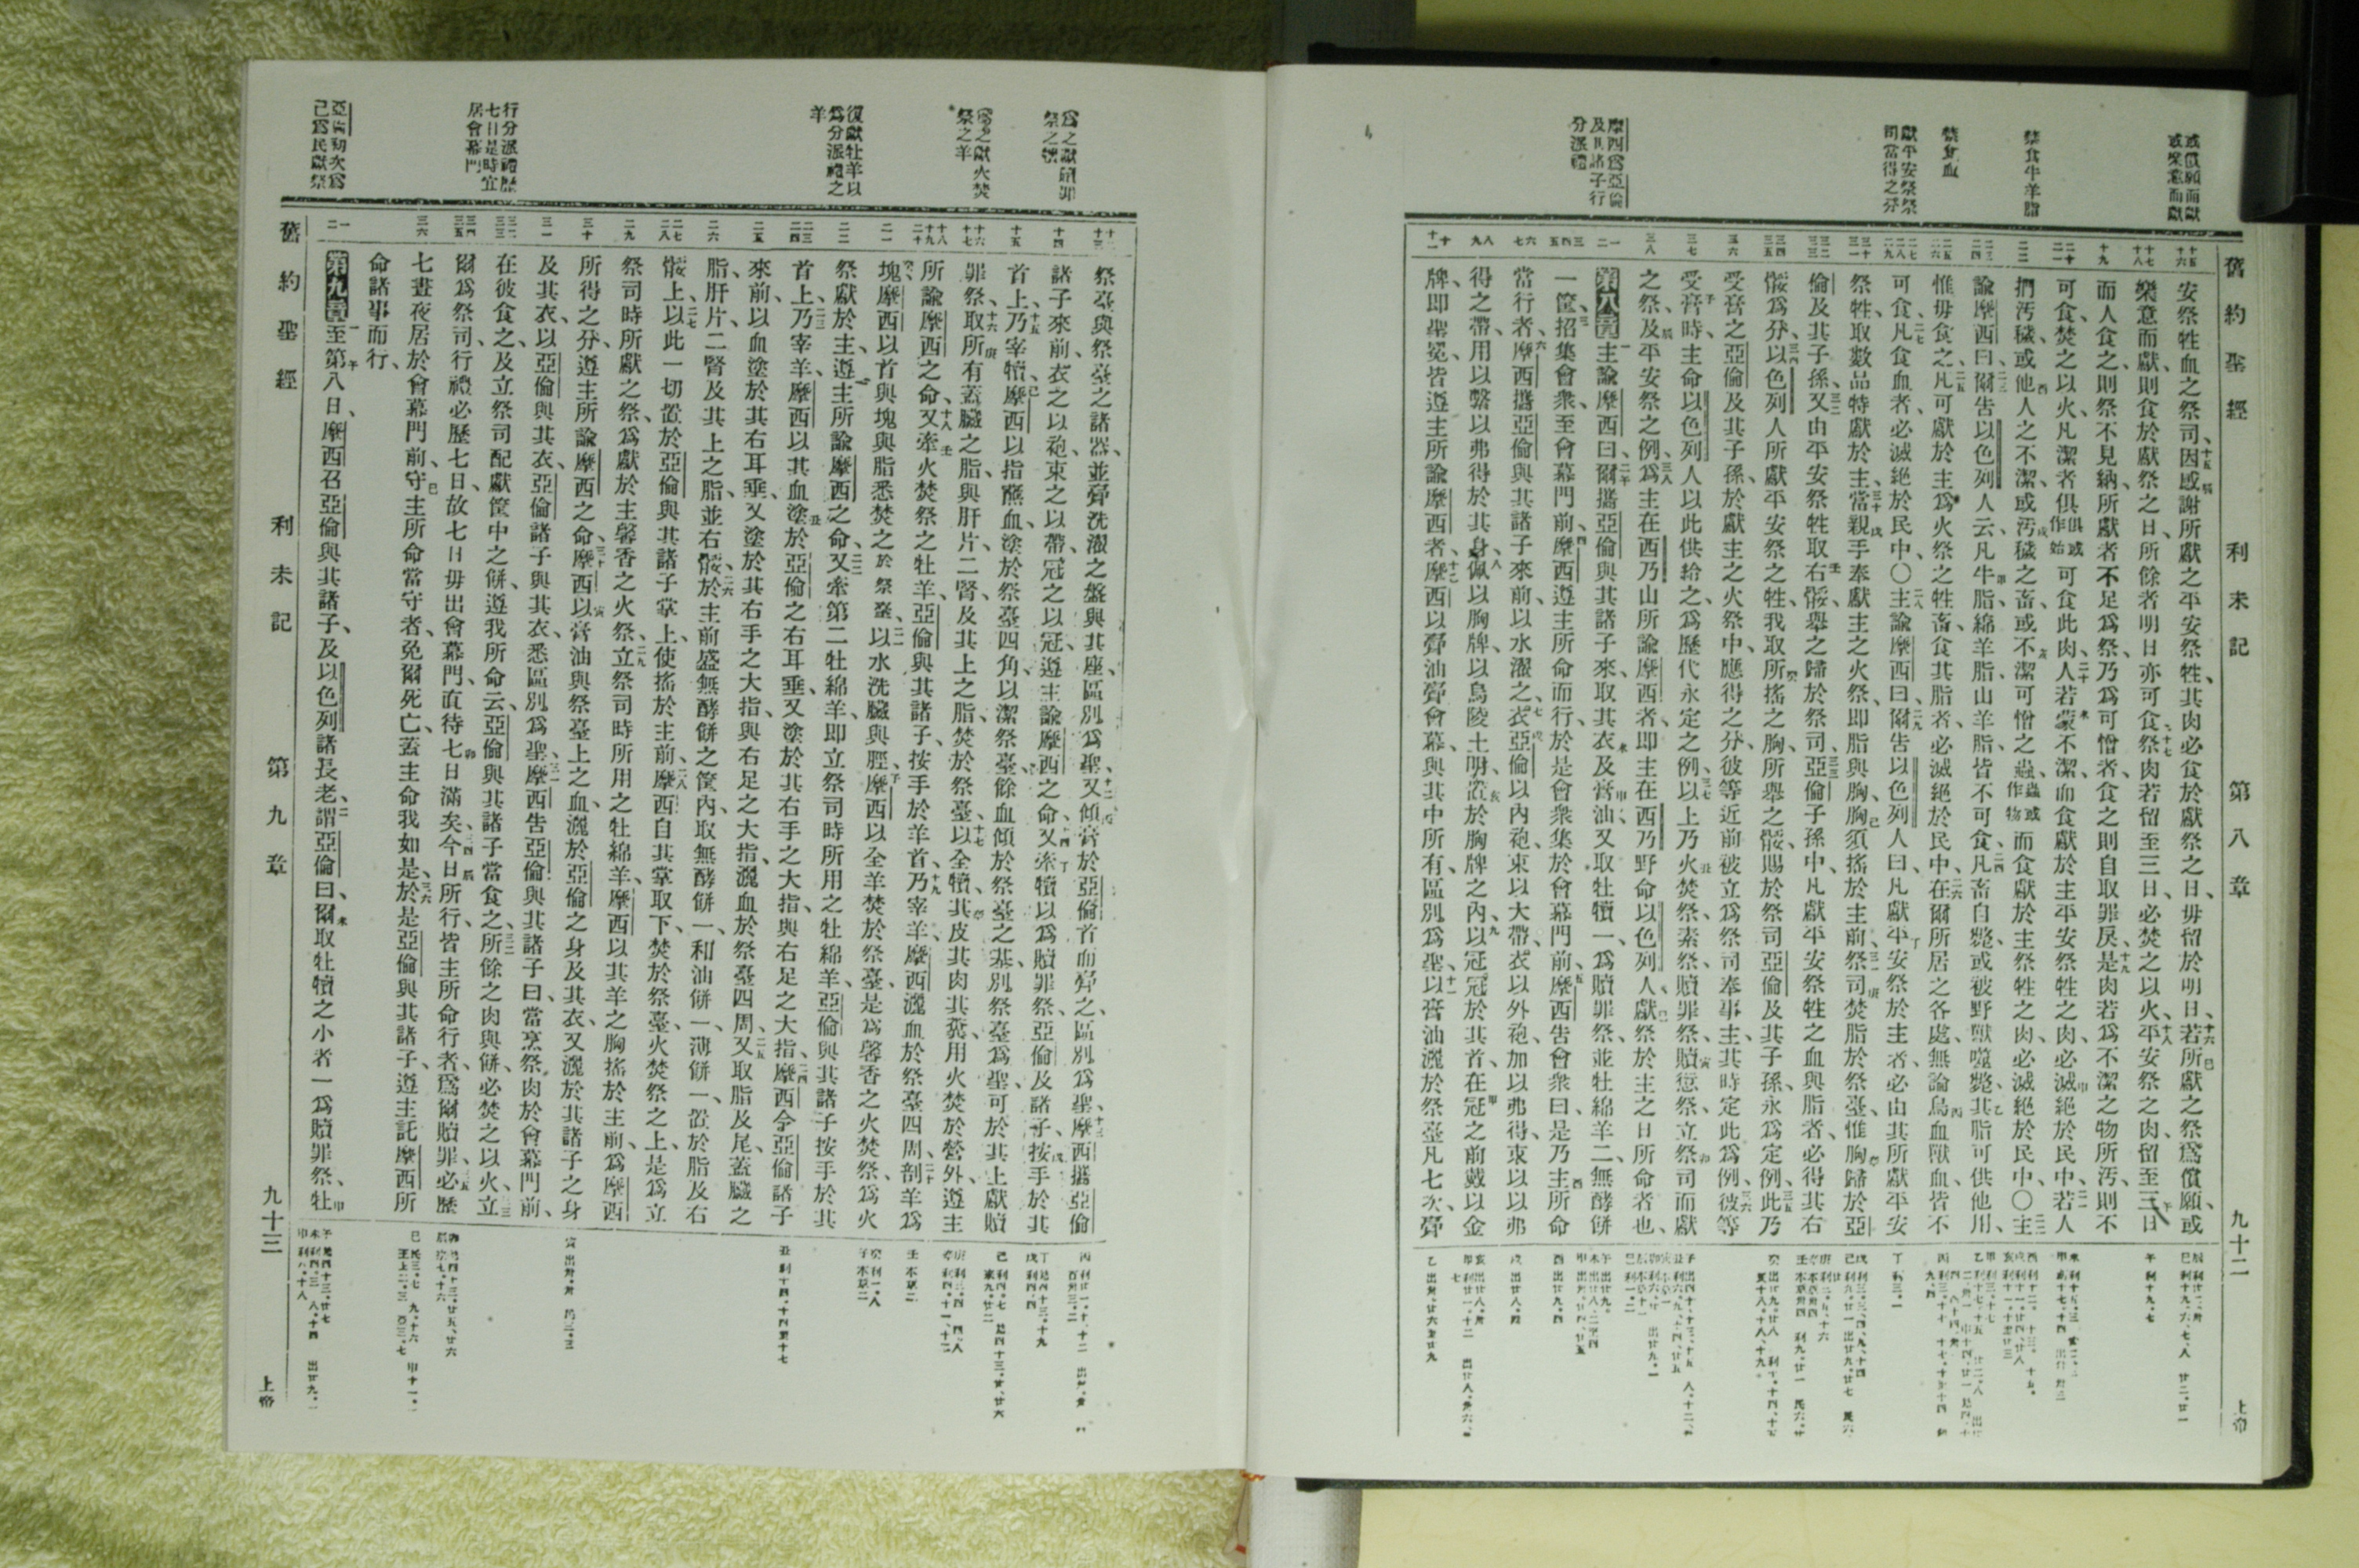 舊約聖經 利未記 第八章 九十二 上帝
或償願而獻
或樂意而獻
禁食牛羊脂
禁食血
獻平安祭祭
司當得之分
摩西爲亞倫
及其諸子行
分派禮
安祭牲血之祭司、因感謝所獻之平安祭牲、其肉必食於獻祭之日、毋留於明日、若所獻之祭、爲償願、或
樂意而獻、則食於獻祭之日、所餘者明日亦可食、祭肉若留至三日、必焚之以火、平安祭之肉、留至三日
而人食之、則祭不見納、所獻者不足爲祭、乃爲可憎者、食之則自取罪戾、是肉若爲不潔之物所汚、則不
可食、焚之以火、凡潔者俱俱或作始可食此肉、人若蒙不潔、而食獻於主平安祭牲之肉、必滅絕於民中、若人
捫汚穢、或他人之不潔、或汚穢之畜、或不潔可憎之蟲、蟲或作物而食獻於主祭牲之肉、必滅絕於民中、〇主
諭摩西曰、爾告以色列人云、凡牛脂、綿羊脂、山羊脂、皆不可食、凡畜自斃、或被野獸噬斃、其脂可供他用、
惟毋食之、凡可獻於主爲火祭之牲畜、食其脂者、必滅絕於民中、在爾所居之各處、無論鳥血獸血、皆不
可食、凡食血者、必滅絕於民中、〇主諭摩西曰、爾告以色列人曰、凡獻平安祭於主者、必由其所獻平安
祭牲、取數品特獻於主、當親手奉獻主之火祭、即脂與胸、胸須搖於主前、祭司焚脂於祭臺、惟胸歸於亞
倫及其子孫、又由平安祭牲取右骽、舉之歸於祭司、亞倫子孫中、凡獻平安祭牲之血與脂者、必得其右
骽爲分、以色列人所獻平安祭之牲、我取所搖之胸、所舉之骽、賜於祭司亞倫及其子孫、永爲定例、此乃
受膏之亞倫及其子孫、於獻主之火祭中、應得之分、彼等近前被立爲祭司奉事主、其時定此爲例、彼等
受膏時、主命以色列人以此供給之、爲歷代永定之例、以上乃火焚祭、素祭、贖罪祭、贖愆祭、立祭司而獻
之祭、及平安祭之例、爲主在西乃山所諭摩西者、即主在西乃野命以色列人獻祭於主之日所命者也、
第八章主諭摩西曰、爾攜亞倫與其諸子來、取其衣及膏油、又取牡犢一、爲贖罪祭、並牡綿羊二、無酵餅
一筐、招集會衆、至會幕門前、摩西遵主所命而行、於是會衆集於會幕門前、摩西告會衆曰、是乃主所命
當行者、摩西攜亞倫與其諸子來前、以水濯之、衣亞倫以內袍、束以大帶、衣以外袍、加以弗得、束以以弗
得之帶、用以繫以弗得於其身、佩以胸牌、以烏陵土明、置於胸牌之內、以冠冠於其首、在冠之前戴以金
牌、即聖冕、皆遵主所諭摩西者、摩西以膏油膏會幕、與其中所有、區別爲聖、以膏油灑於祭臺凡七次、膏
爲之獻贖罪
祭之犢
爲之獻火焚
祭之羊
復獻牡羊以
爲分派禮之
羊
行分派禮歷
七日是時宜
居會幕門
亞倫初次爲
己爲民獻祭
祭臺與祭臺之諸器、並膏洗濯之盤與其座、區別爲聖、又傾膏於亞倫首而膏之、區別爲聖、摩西攜亞倫
諸子來前、衣之以袍、束之以帶、冠之以冠、遵主諭摩西之命、又牽犢以爲贖罪祭、亞倫及諸子按手於其
首上、乃宰犢、摩西以指蘸血、塗於祭臺四角、以潔祭臺、餘血傾於祭臺之基、別祭臺爲聖、可於其上獻贖
罪祭、取所有蓋臟之脂、與肝片、二腎、及其上之脂、焚於祭臺、以全犢、其皮其肉其糞、用火焚於營外、遵主
所諭摩西之命、又牽火焚祭之牡羊、亞倫與其諸子、按手於羊首、乃宰羊、摩西灑血於祭臺四周、剖羊爲
塊、摩西以首與塊與脂悉焚之於祭臺、以水洗臟與脛、摩西以全羊焚於祭臺、是爲馨香之火焚祭、爲火
祭獻於主、遵主所諭摩西之命、又牽第二牡綿羊、即立祭司時所用之牡綿羊、亞倫與其諸子按手於其
首上、乃宰羊、摩西以其血塗於亞倫之右耳垂、又塗於其右手之大指、與右足之大指、摩西令亞倫諸子
來前、以血塗於其右耳垂、又塗於其右手之大指、與右足之大指、灑血於祭臺四周、又取脂及尾、蓋臟之
脂、肝片、二腎及其上之脂、並右骽、於主前盛無酵餅之筐內、取無酵餅一、利油餅一、薄餅一、置於脂及右
骽上、以此一切置於亞倫與其諸子掌上、使搖於主前、摩西自其掌取下、焚於祭臺、火焚祭之上、是爲立
祭司時所獻之祭、爲獻於主馨香之火祭、立祭司時所用之牡綿羊、摩西以其羊之胸搖於主前、爲摩西
所得之分、遵主所諭摩西之命、摩西以膏油與祭臺上之血、灑於亞倫之身及其衣、又灑於其諸子之身
及其衣、以亞倫與其衣、亞倫諸子與其衣、悉區別爲聖、摩西告亞倫與其諸子曰、當烹祭肉於會幕門前、
在彼食之、及立祭司配獻筐中之餅、遵我所命云、亞倫與其諸子當食之、所餘之肉與餅、必焚之以火、立
爾爲祭司、行禮必歷七日、故七日毋出會幕門、直待七日滿矣、今日所行、皆主所命行者、爲爾贖罪、必歷
七晝夜居於會幕門前、守主所命當守者、免爾死亡、蓋主命我如是、於是亞倫與其諸子、遵主託摩西所
命諸事而行、
第九章至第八日、摩西召亞倫與其諸子、及以色列諸長老、謂亞倫曰、爾取牡犢之小者一爲贖罪祭、牡
舊約聖經 利未記 第九章 九十三 上帝